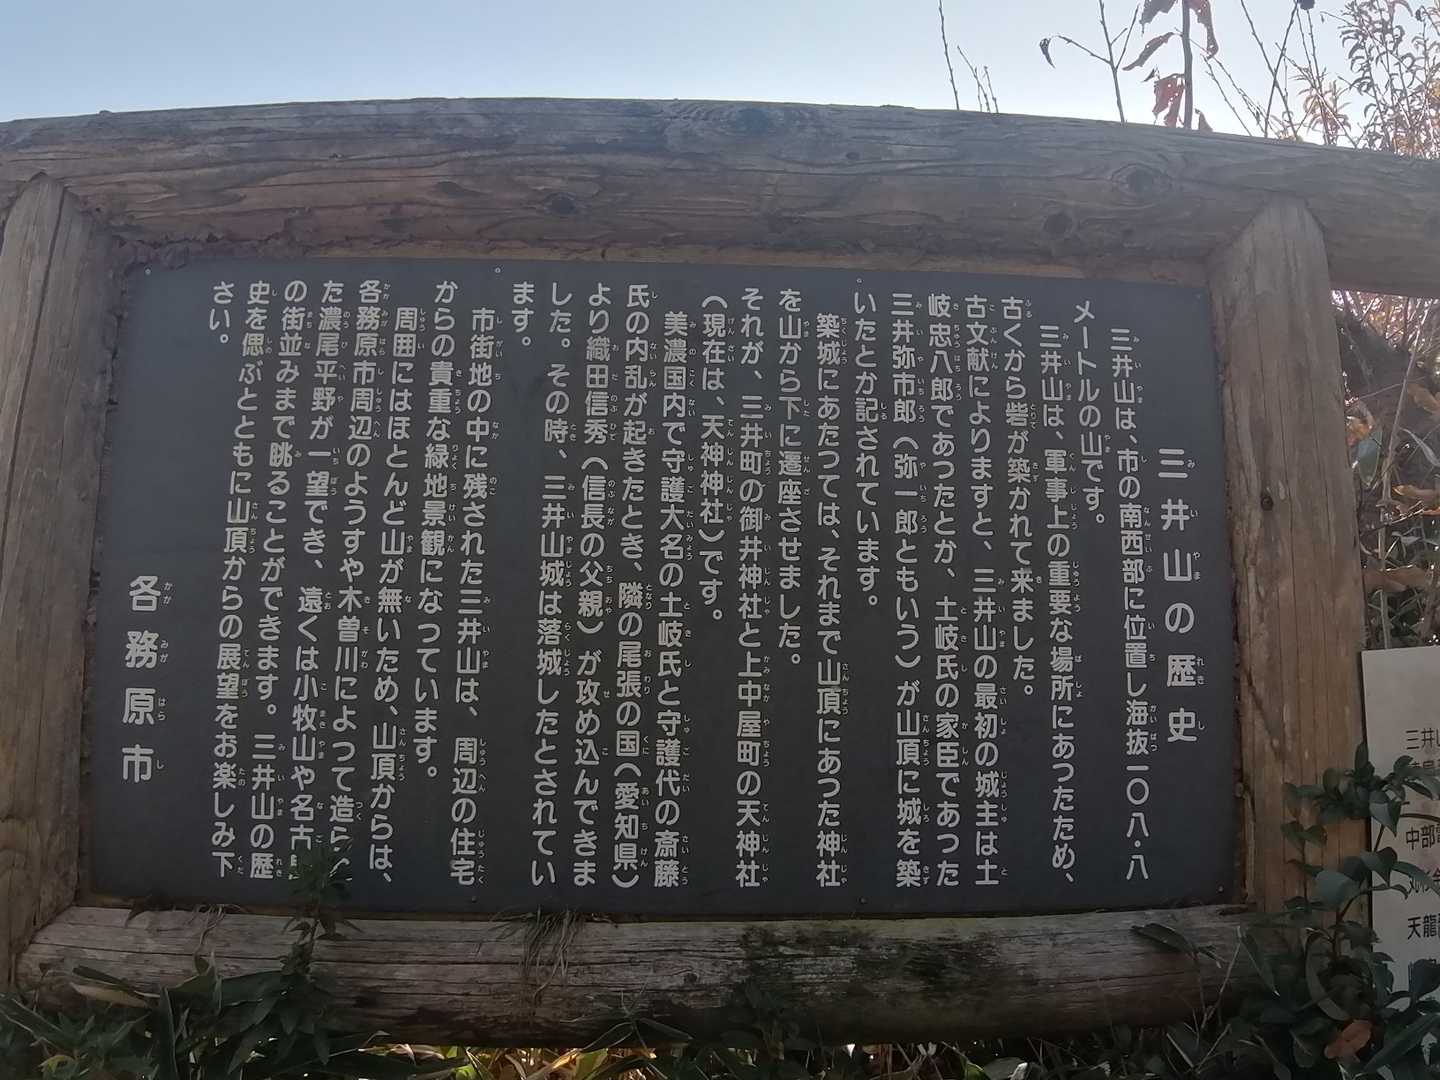 三井山の歴史
三井山は、市の南西部に位置し海抜一〇八・八
メートルの山です。
三井山は、軍事上の重要な場所にあったため、
古くから砦が築かれて来ました。
古文献によりますと、三井山の最初の城主は土
岐忠八郎であったとか、土岐氏の家臣であった
三井弥市郎（弥一郎ともいう）が山頂に城を築
いたとか記されています。
築城にあたっては、それまで山頂にあった神社
を山から下に遷座させました。
それが、三井町の御井神社と上中屋町の天神社
（現在は、天神神社）です。
美濃国内で守護大名の土岐氏と守護代の斎藤
氏の内乱が起きたとき、隣の尾張の国（愛知県）
より織田信秀（信長の父親）が攻め込んできま
した。その時、三井山城は落城したとされてい
ます。
市街地の中に残された三井山は、周辺の住宅
からの貴重な緑地景観になっています。
周囲にはほとんど山が無いため、山頂からは、
各務原市周辺のようすや木曽川によって造ら
た濃尾平野が一望でき、遠くは小牧山や名古
の街並みまで眺めることができます。三井山の歴
史を偲ぶとともに山頂からの展望をお楽しみ下
さい。
各務原市
三井
中部
天龍